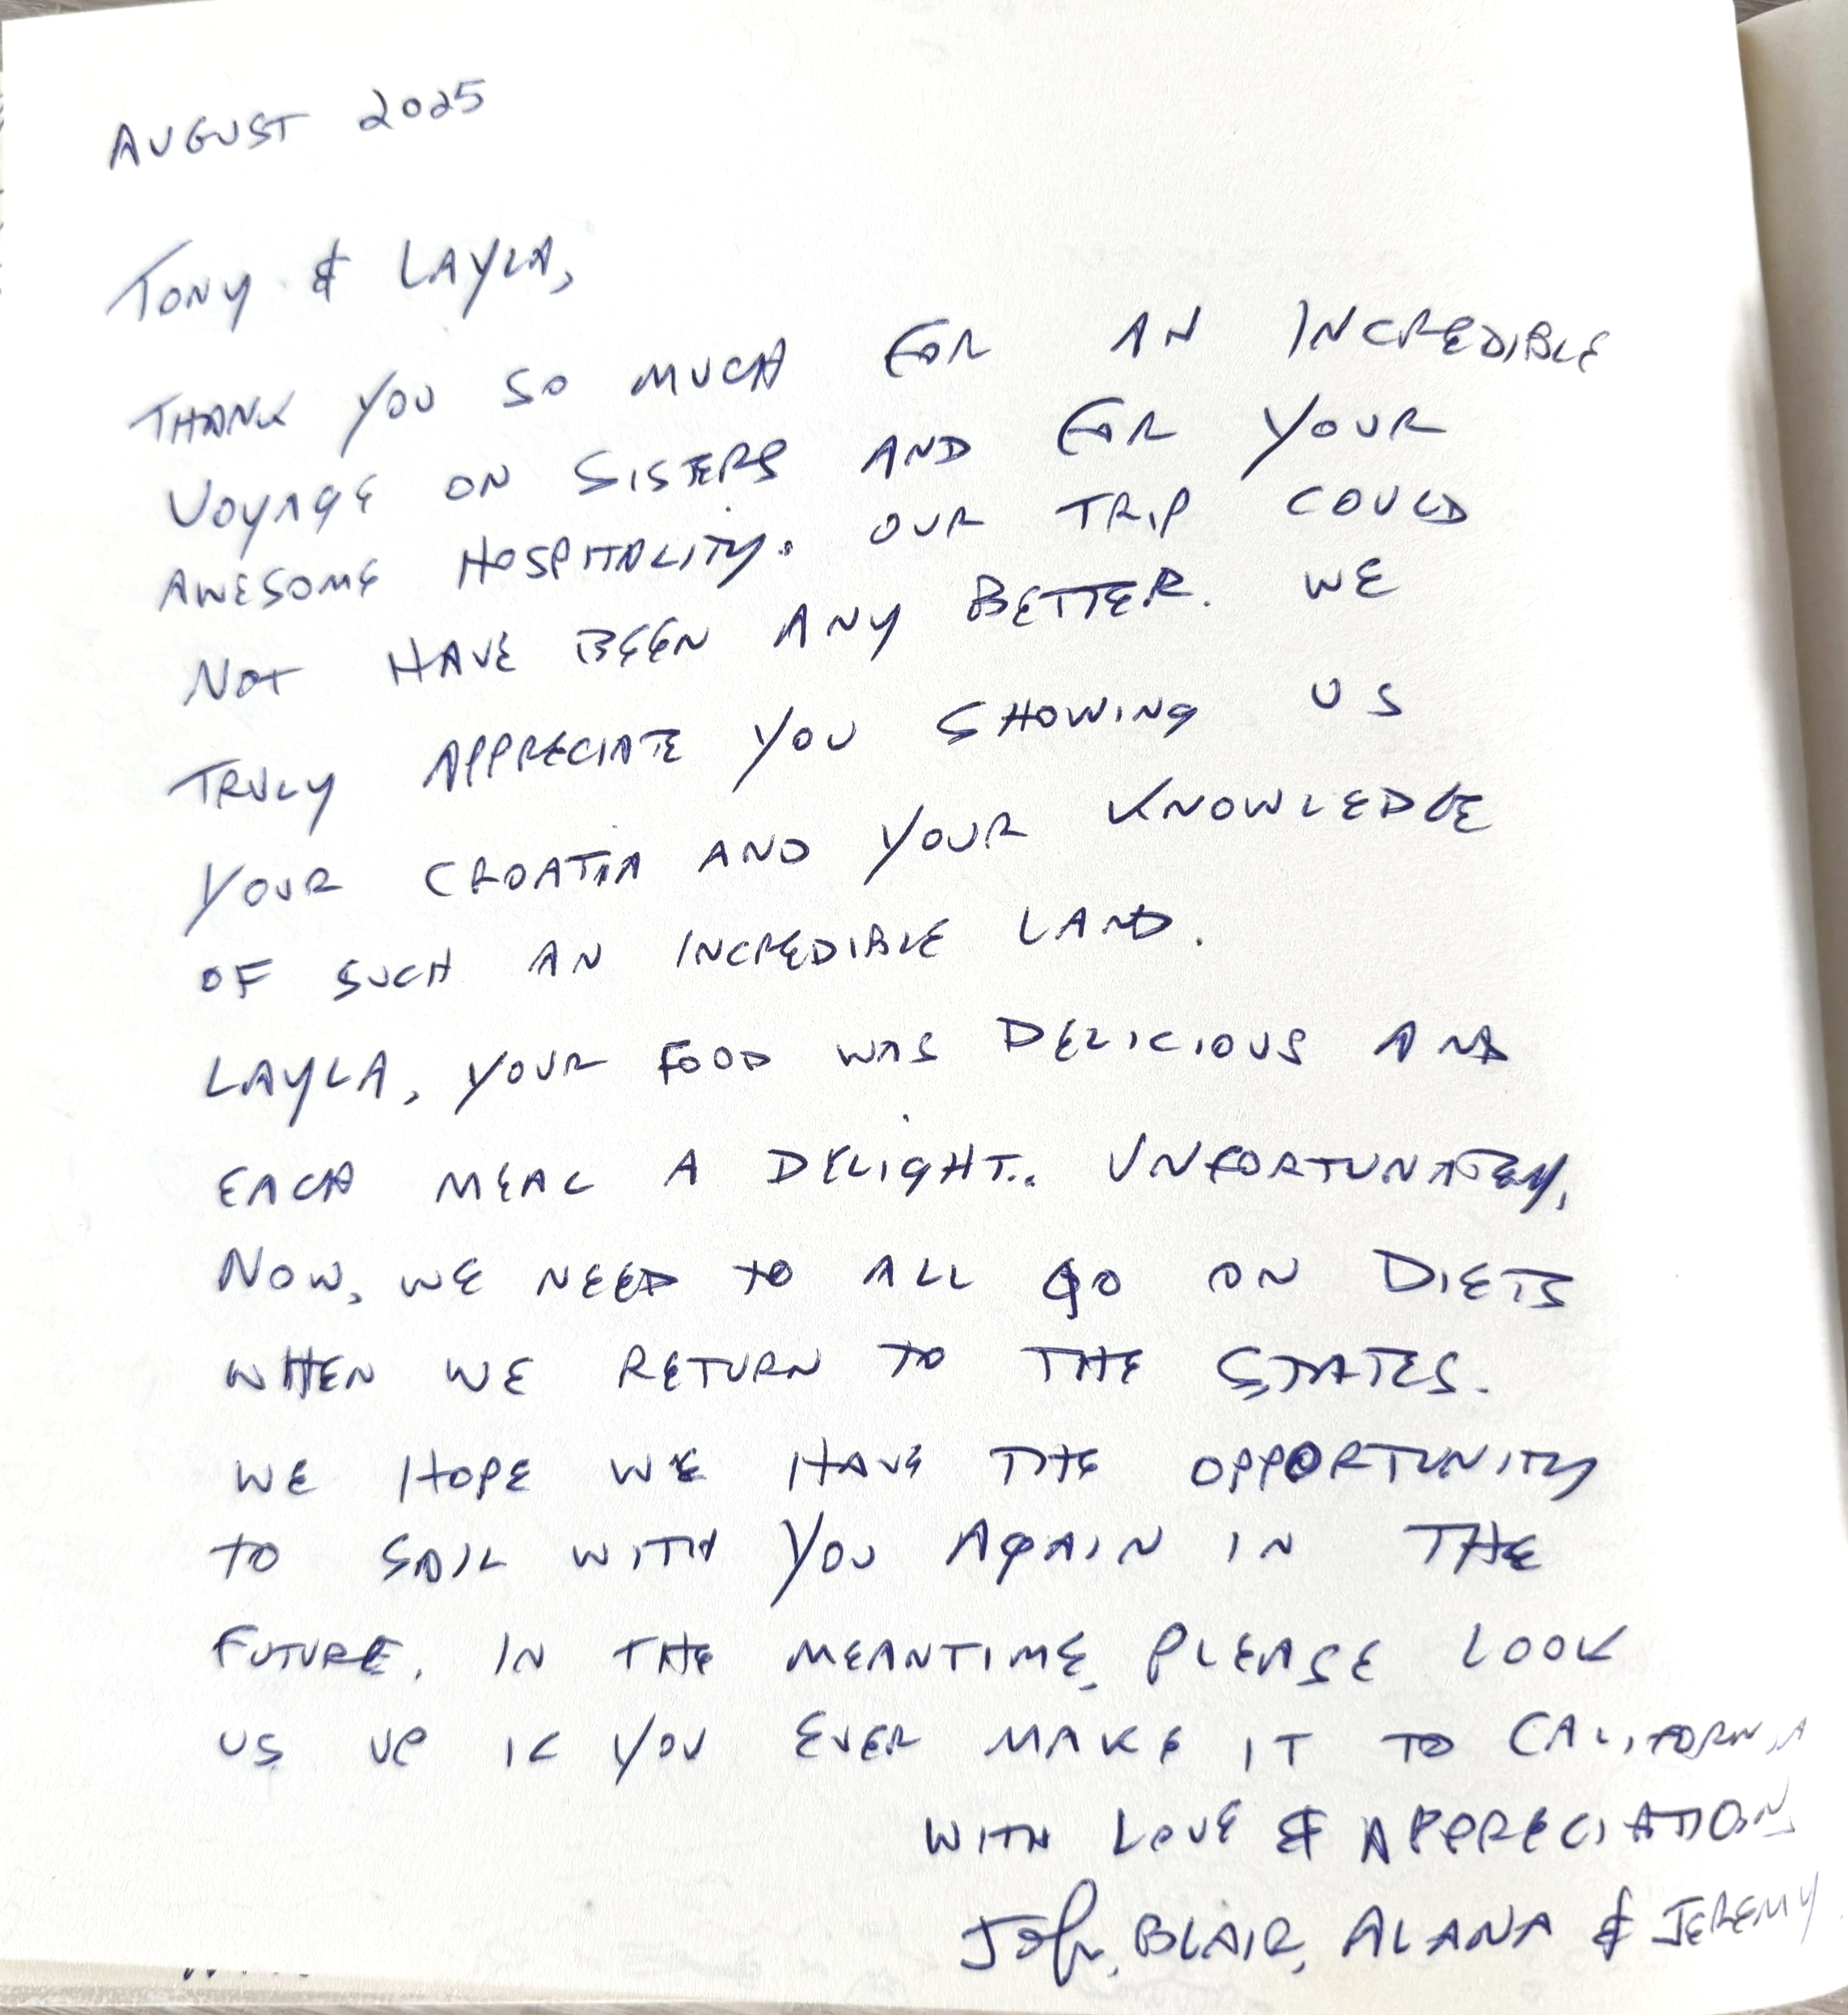 AUGUST 2025
TONY & LAYLA,
THANK YOU SO MUCH FOR AN INCREDIBLE
VOYAGE ON SISTERS AND FOR YOUR
AWESOME HOSPITALITY. OUR TRIP COULD
NOT HAVE BEEN ANY BETTER. WE
TRULY APPRECIATE YOU SHOWING US
YOUR CROATIA AND YOUR KNOWLEDGE
OF SUCH AN INCREDIBLE LAND.
LAYLA, YOUR FOOD WAS DELICIOUS AND
EACH MEAL A DELIGHT.. UNFORTUNATELY,
NOW, WE NEED TO ALL GO ON DIETS
WHEN WE RETURN TO THE STATES.
WE HOPE WE HAVE THE OPPORTUNITY
TO SAIL WITH YOU AGAIN IN THE
FUTURE. IN THE MEANTIME, PLEASE LOOK
US UP IF YOU EVER MAKE IT TO CALIFORNIA
WITH LOVE & APPRECIATION
John, BLAIR, ALANA & JEREMY